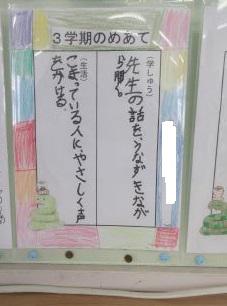 3学期のめあて
(学しゅう)
先生の話を、うなずきなが
ら聞く。
(生活)
こまっている人に、やさしく声
をかける。